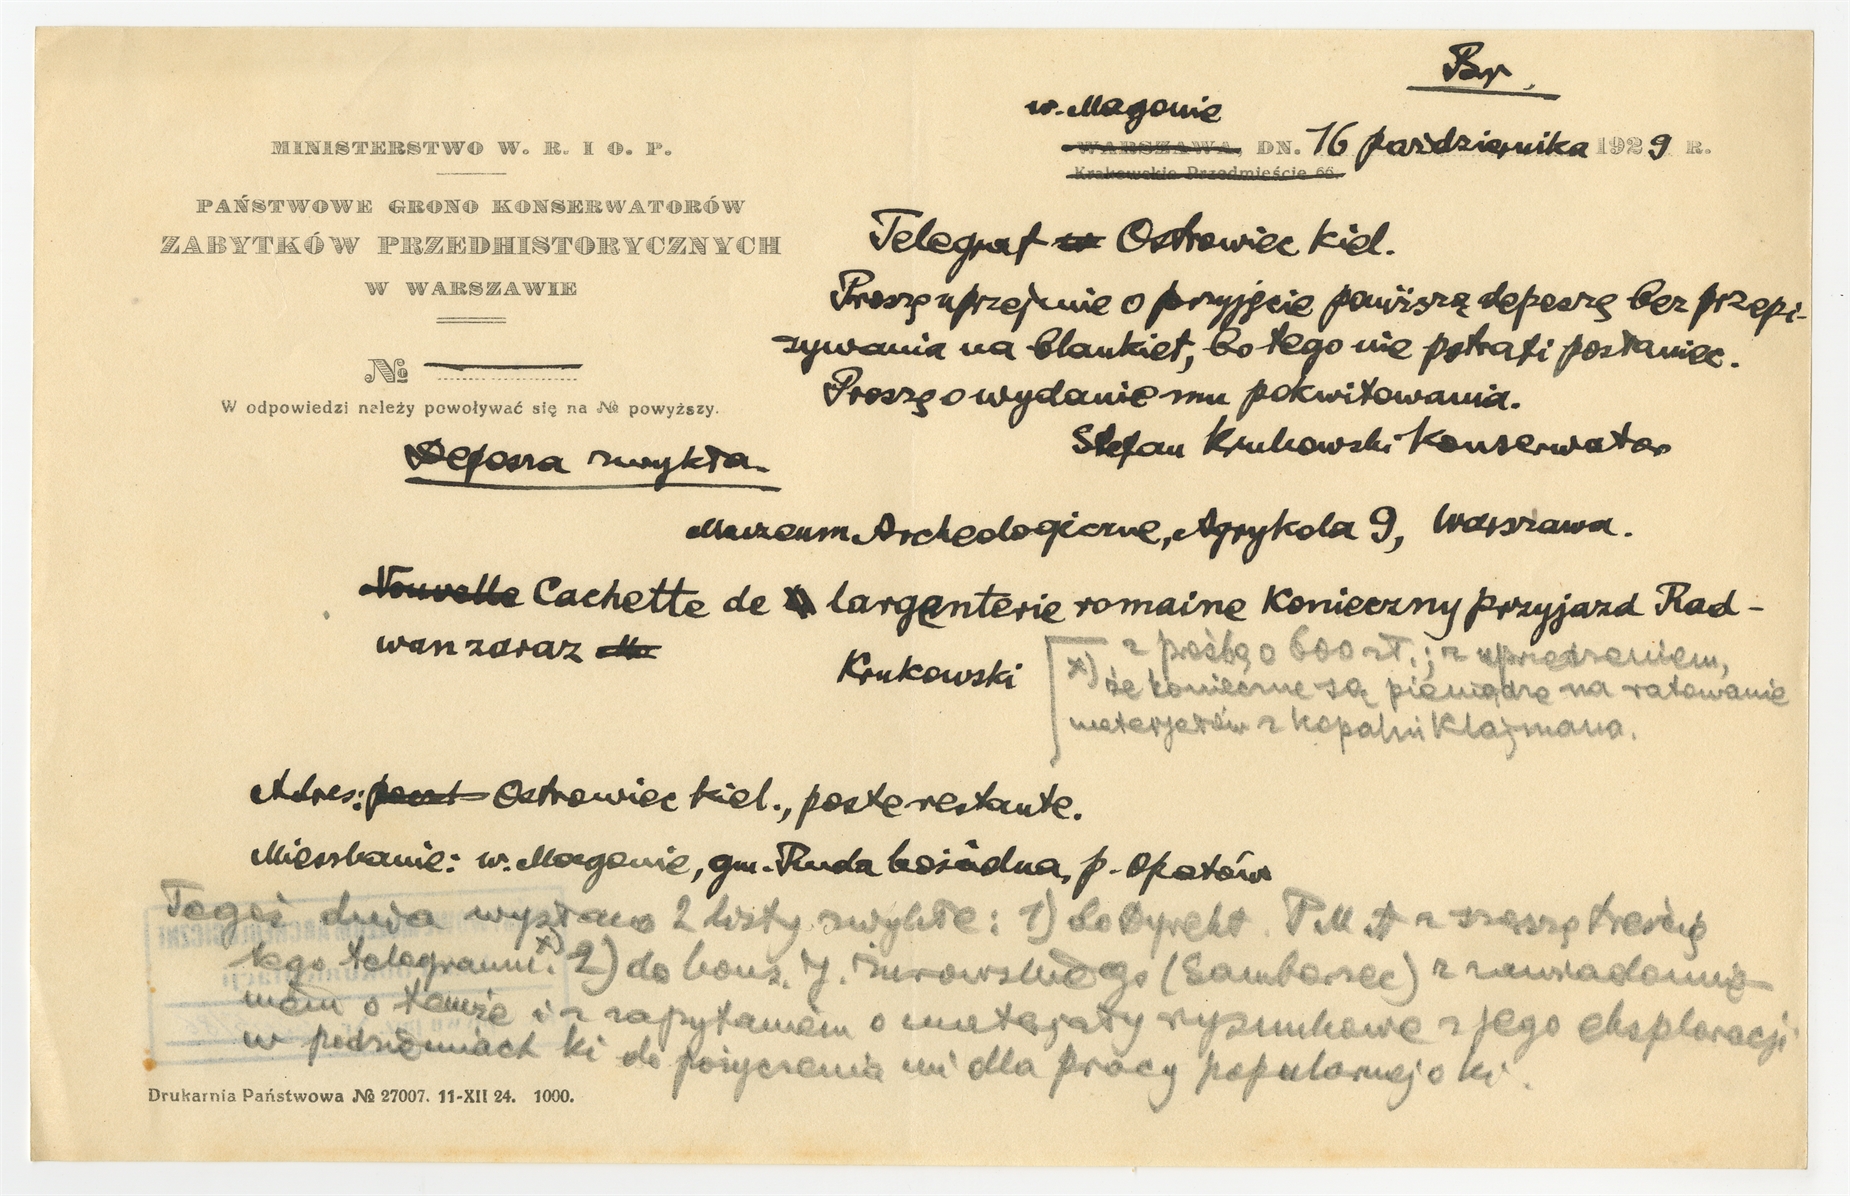 Br.
w. Magonie
MINISTERSTWO W. R. I O. P.
WARSZAWA, DN. 16 października 1929 R.
Krakowskie Przedmieście 66.
PAŃSTWOWE GRONO KONSERWATORÓW
ZABYTKÓW PRZEDHISTORYCZNYCH
W WARSZAWIE
№
W odpowiedzi należy powoływać się na № powyższy.
Telegraf w Ostrowiec kiel.
Proszę uprzejmie o przyjęcie poniższą depeszę bez przepi-
sywania na blankiet, bo tego nie potrafi posłaniec.
Proszę o wydanie mu pokwitowania.
Stefan Krukowski Konserwator
Depesza zwykła.
Muzeum Archeologiczne, Agrykola 9, Warszawa.
Nouvelle Cachette de largenterie romaine Konieczny przyjazd Rad-
wan zaraz
Krukowski
z prośbą o 600 zł.; z uprzedzeniem,
x) że konieczne są pieniądze na ratowanie
materjałów z kopalni Klajmana.
Adres: poczt Ostrowiec kiel., poste restante.
Mieszkanie: w. Magonie, gm. Ruda kościelna, p. Opatów
Tegoż dnia wysłano 2 listy zwykłe: 1) do Dyrekt. P M A z treścią
tego telegramu. x) 2) do kons. J. Żurowskiego (Samborzec) z zawiadomie
niem o temże i z zapytaniem o materjały rysunkowe z jego eksploracji
w podziemiach ki do pożyczenia mi dla pracy popularnej o ki.
Drukarnia Państwowa № 27007. 11-XII 24. 1000.